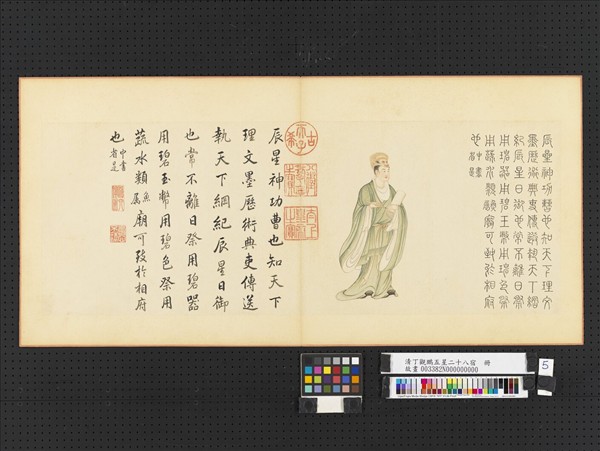 辰星神功曹也知天下理文
墨歷術典吏傳送執天下綱
紀辰星日御也常不離日祭
用碧器用碧玉幣用碧色祭
用蔬水類魚屬廟可致於相府
也中書省是
古希天子
辰星神功曹也知天下
理文墨歷術典吏傳送
執天下綱紀辰星日御
也常不離日祭用碧器
用碧玉幣用碧色祭用
蔬水類魚屬廟可致於相府
也中書省是
清丁觀鵬五星二十八宿 冊
故畫 003382N000000000
5